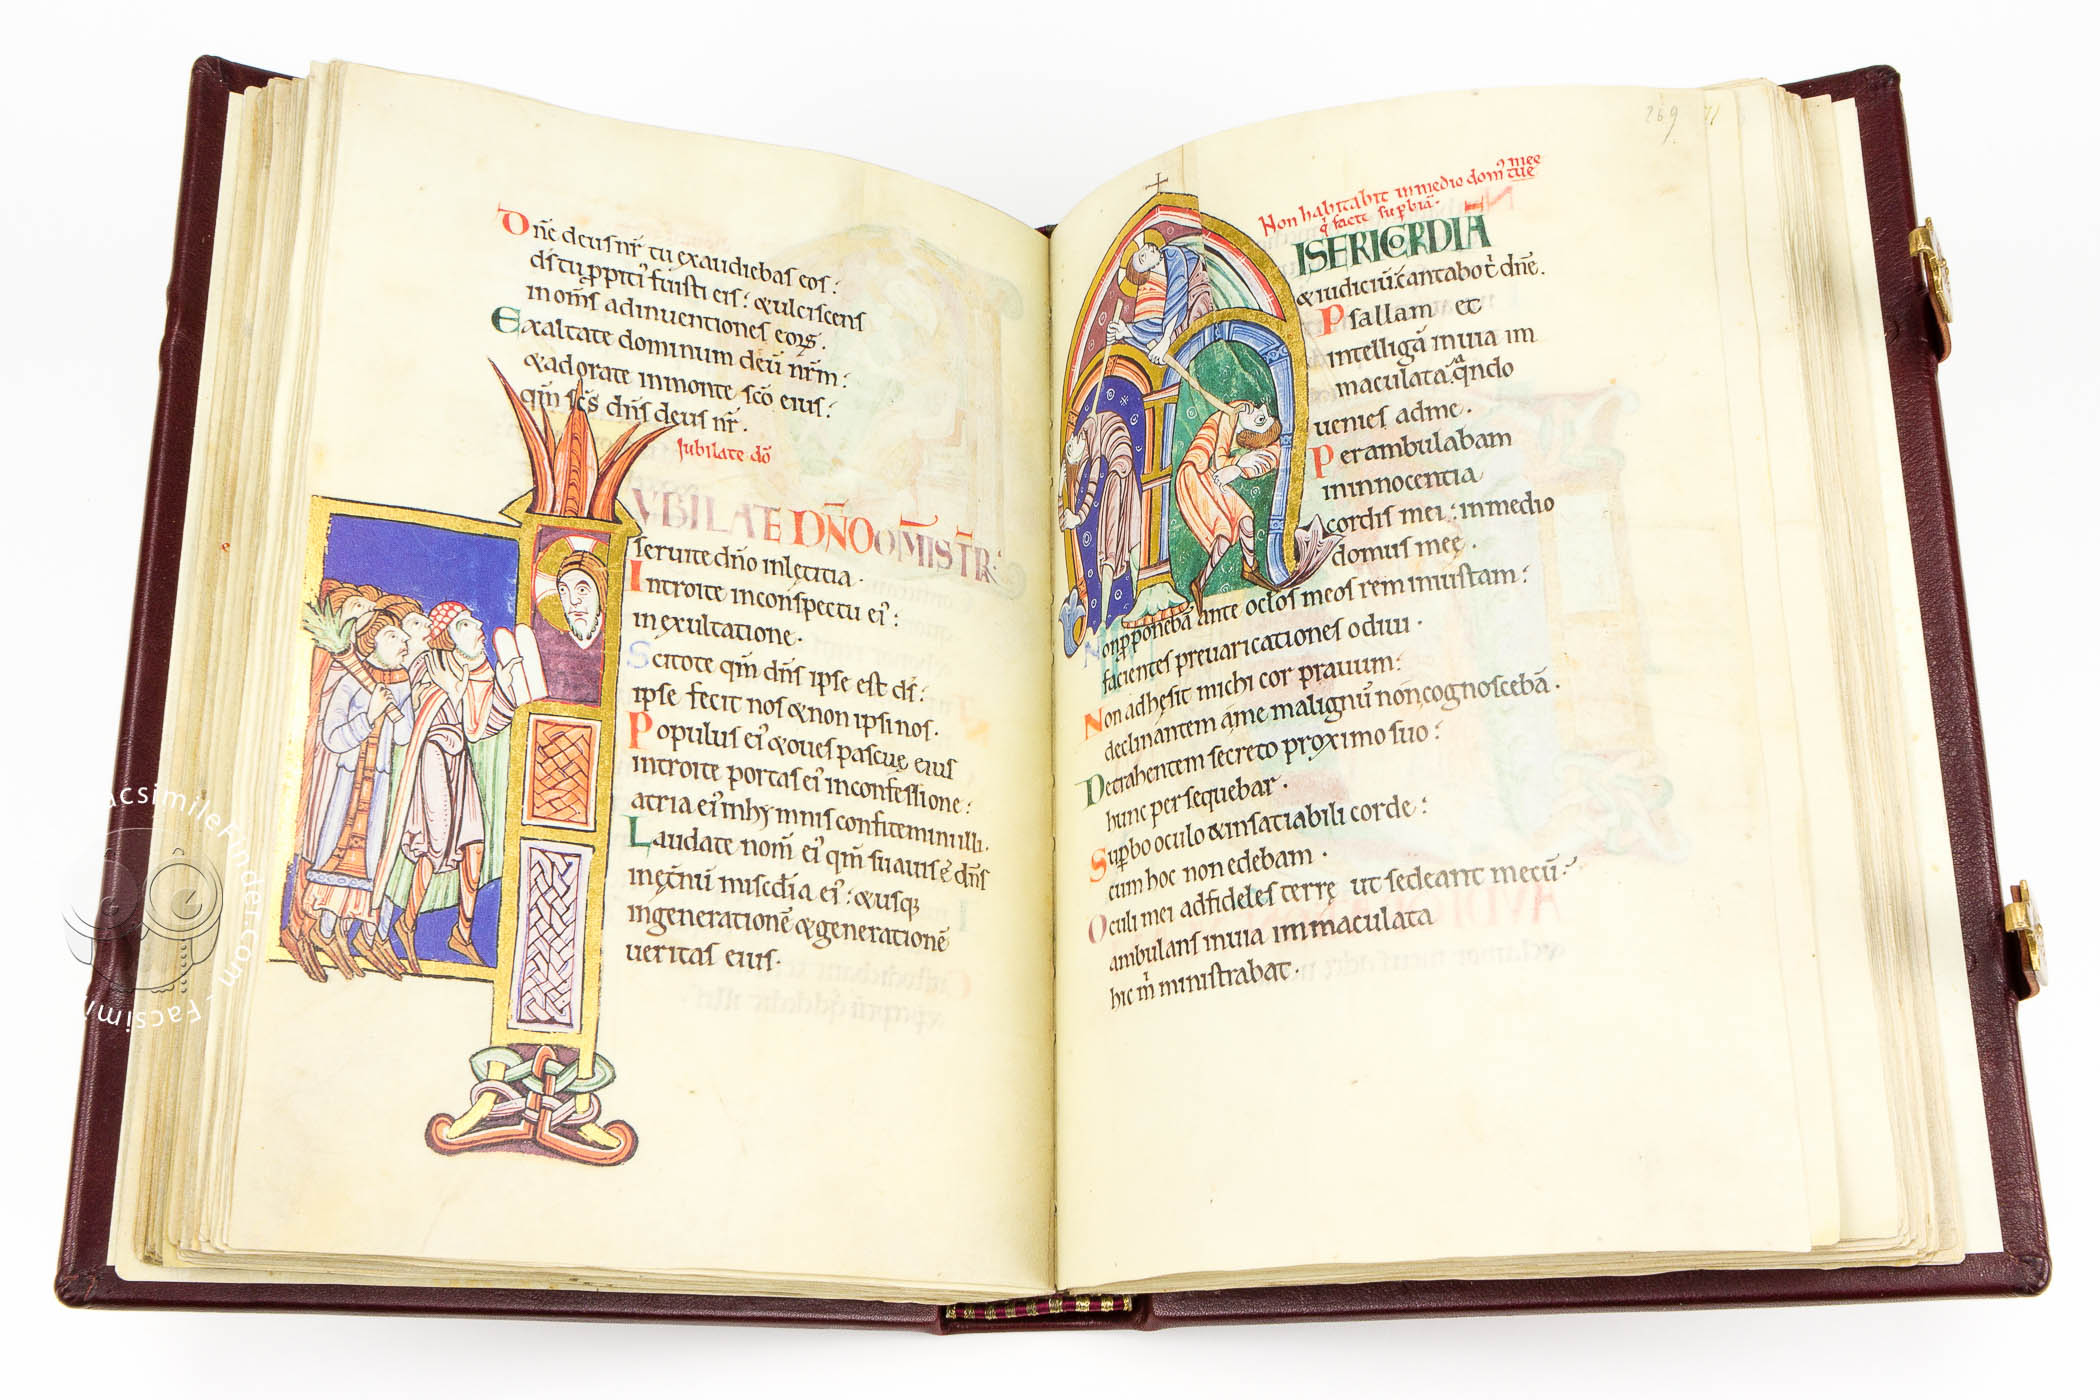 Dn̄e deus nr̄ tu exaudiebas eos:
ds̄ tu ꝓpitiꝰ fuisti eis: & ulciscens
in om̄s adinuentiones eoꝝ.
Exaltate dominum deū nr̄m:
& adorate in monte sc̄o eius:
qm̄ sc̄s dn̄s deus nr̄.
Iubilate dō
VBILATE DÑO OM̄IS TR̄
seruite dn̄o in lętitia.
Introite in conspectu eiꝰ:
in exultatione.
Scitote qm̄ dn̄s ipse est ds̄:
ipse fecit nos & non ipsi nos.
Populus eiꝰ & oues pascuę eius
introite portas eiꝰ in confessione:
atria eiꝰ in hymnis confitemini illi.
Laudate nom̄ eiꝰ qm̄ suauis ē dn̄s
in ęt̄nū mis̄cdia eiꝰ: & usq;
in generationē & generationē
ueritas eius.
269 71
ꝯ meę
Non habitabit in medio dom tuę
q̄ facit supbiā.
ISERICORDIA
& iudiciū cantabo t̄ dn̄e.
Psallam et
intelligā in uia im
maculata qͣndo
uenies ad me.
Perambulabam
in innocentia
cordis mei: in medio
domus meę.
Non ꝓponebā ante oc̄los meos rem iniustam:
facientes preuaricationes odiui.
Non adhęsit michi cor prauum:
declinantem a me malignū non cognoscebā.
Detrahentem secreto proximo suo:
hunc persequebar.
Supbo oculo & insatiabili corde:
cum hoc non edebam.
Oculi mei ad fideles terrę ut sedeant mecū:
ambulans in uia immaculata
hic m̄ ministrabat.
FacsimileFinder.com - Facsimi